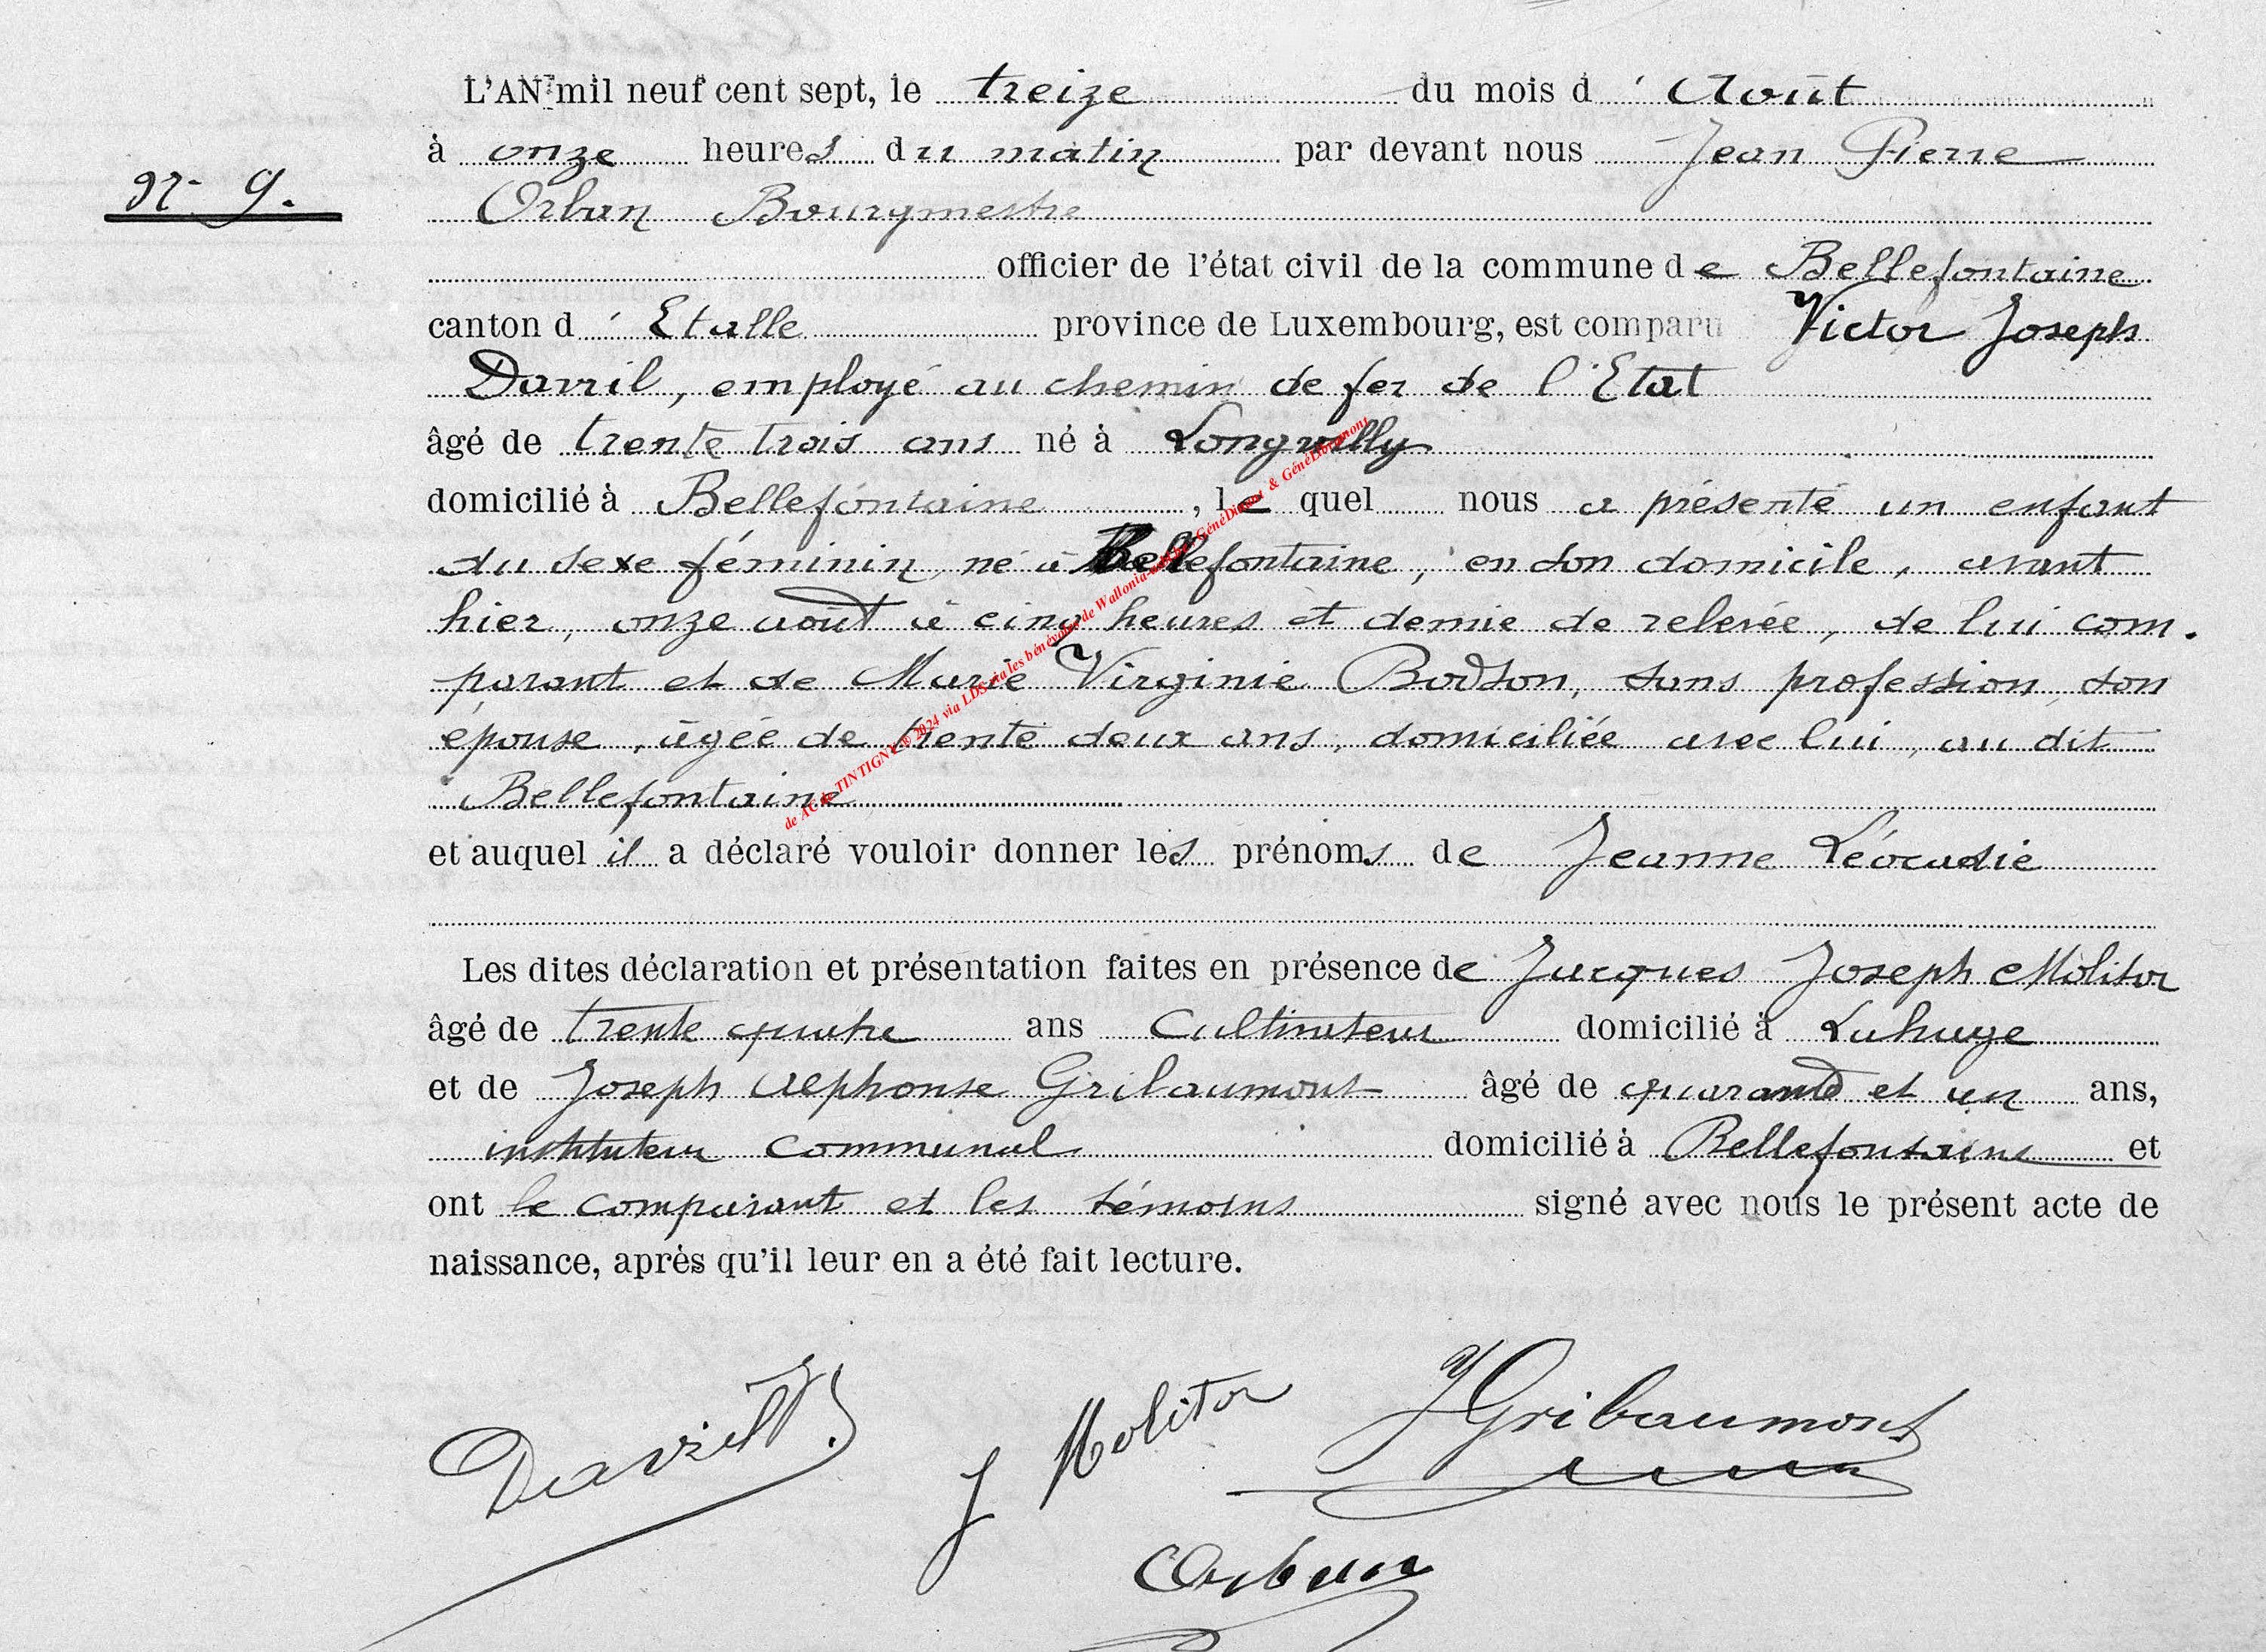 L'AN mil neuf cent sept, le treize du mois d'Août
à onze heures du matin par devant nous Jean Pierre
N° 9.
Orban Bourgmestre
officier de l'état civil de la commune de Bellefontaine
canton d'Etalle province de Luxembourg, est comparu Victor Joseph
Davril, employé au chemin de fer de l'Etat
âgé de trente trois ans né à Longvilly
domicilié à Bellefontaine, le quel nous a présenté un enfant
du sexe féminin, né à Bellefontaine, en son domicile, avant
hier, onze août à cinq heures et demie de relevée, de lui com-
parant et de Marie Virginie Bodson, sans profession, son
épouse, âgée de trente deux ans, domiciliée avec lui, au dit
Bellefontaine
de AC de TINTIGNY © 2024 via LDS via les bénévoles de Wallonia & GénéDinant & GénéLibramont
et auquel il a déclaré vouloir donner les prénoms de Jeanne Léocadie
Les dites déclaration et présentation faites en présence de Jacques Joseph Molitor
âgé de trente quatre ans Cultivateur domicilié à Lahage
et de Joseph Alphonse Gribaumont âgé de quarante et un ans,
instituteur communal domicilié à Bellefontaine et
ont le comparant et les témoins signé avec nous le présent acte de
naissance, après qu'il leur en a été fait lecture.
Davril
J Molitor
J Gribaumont
Orban